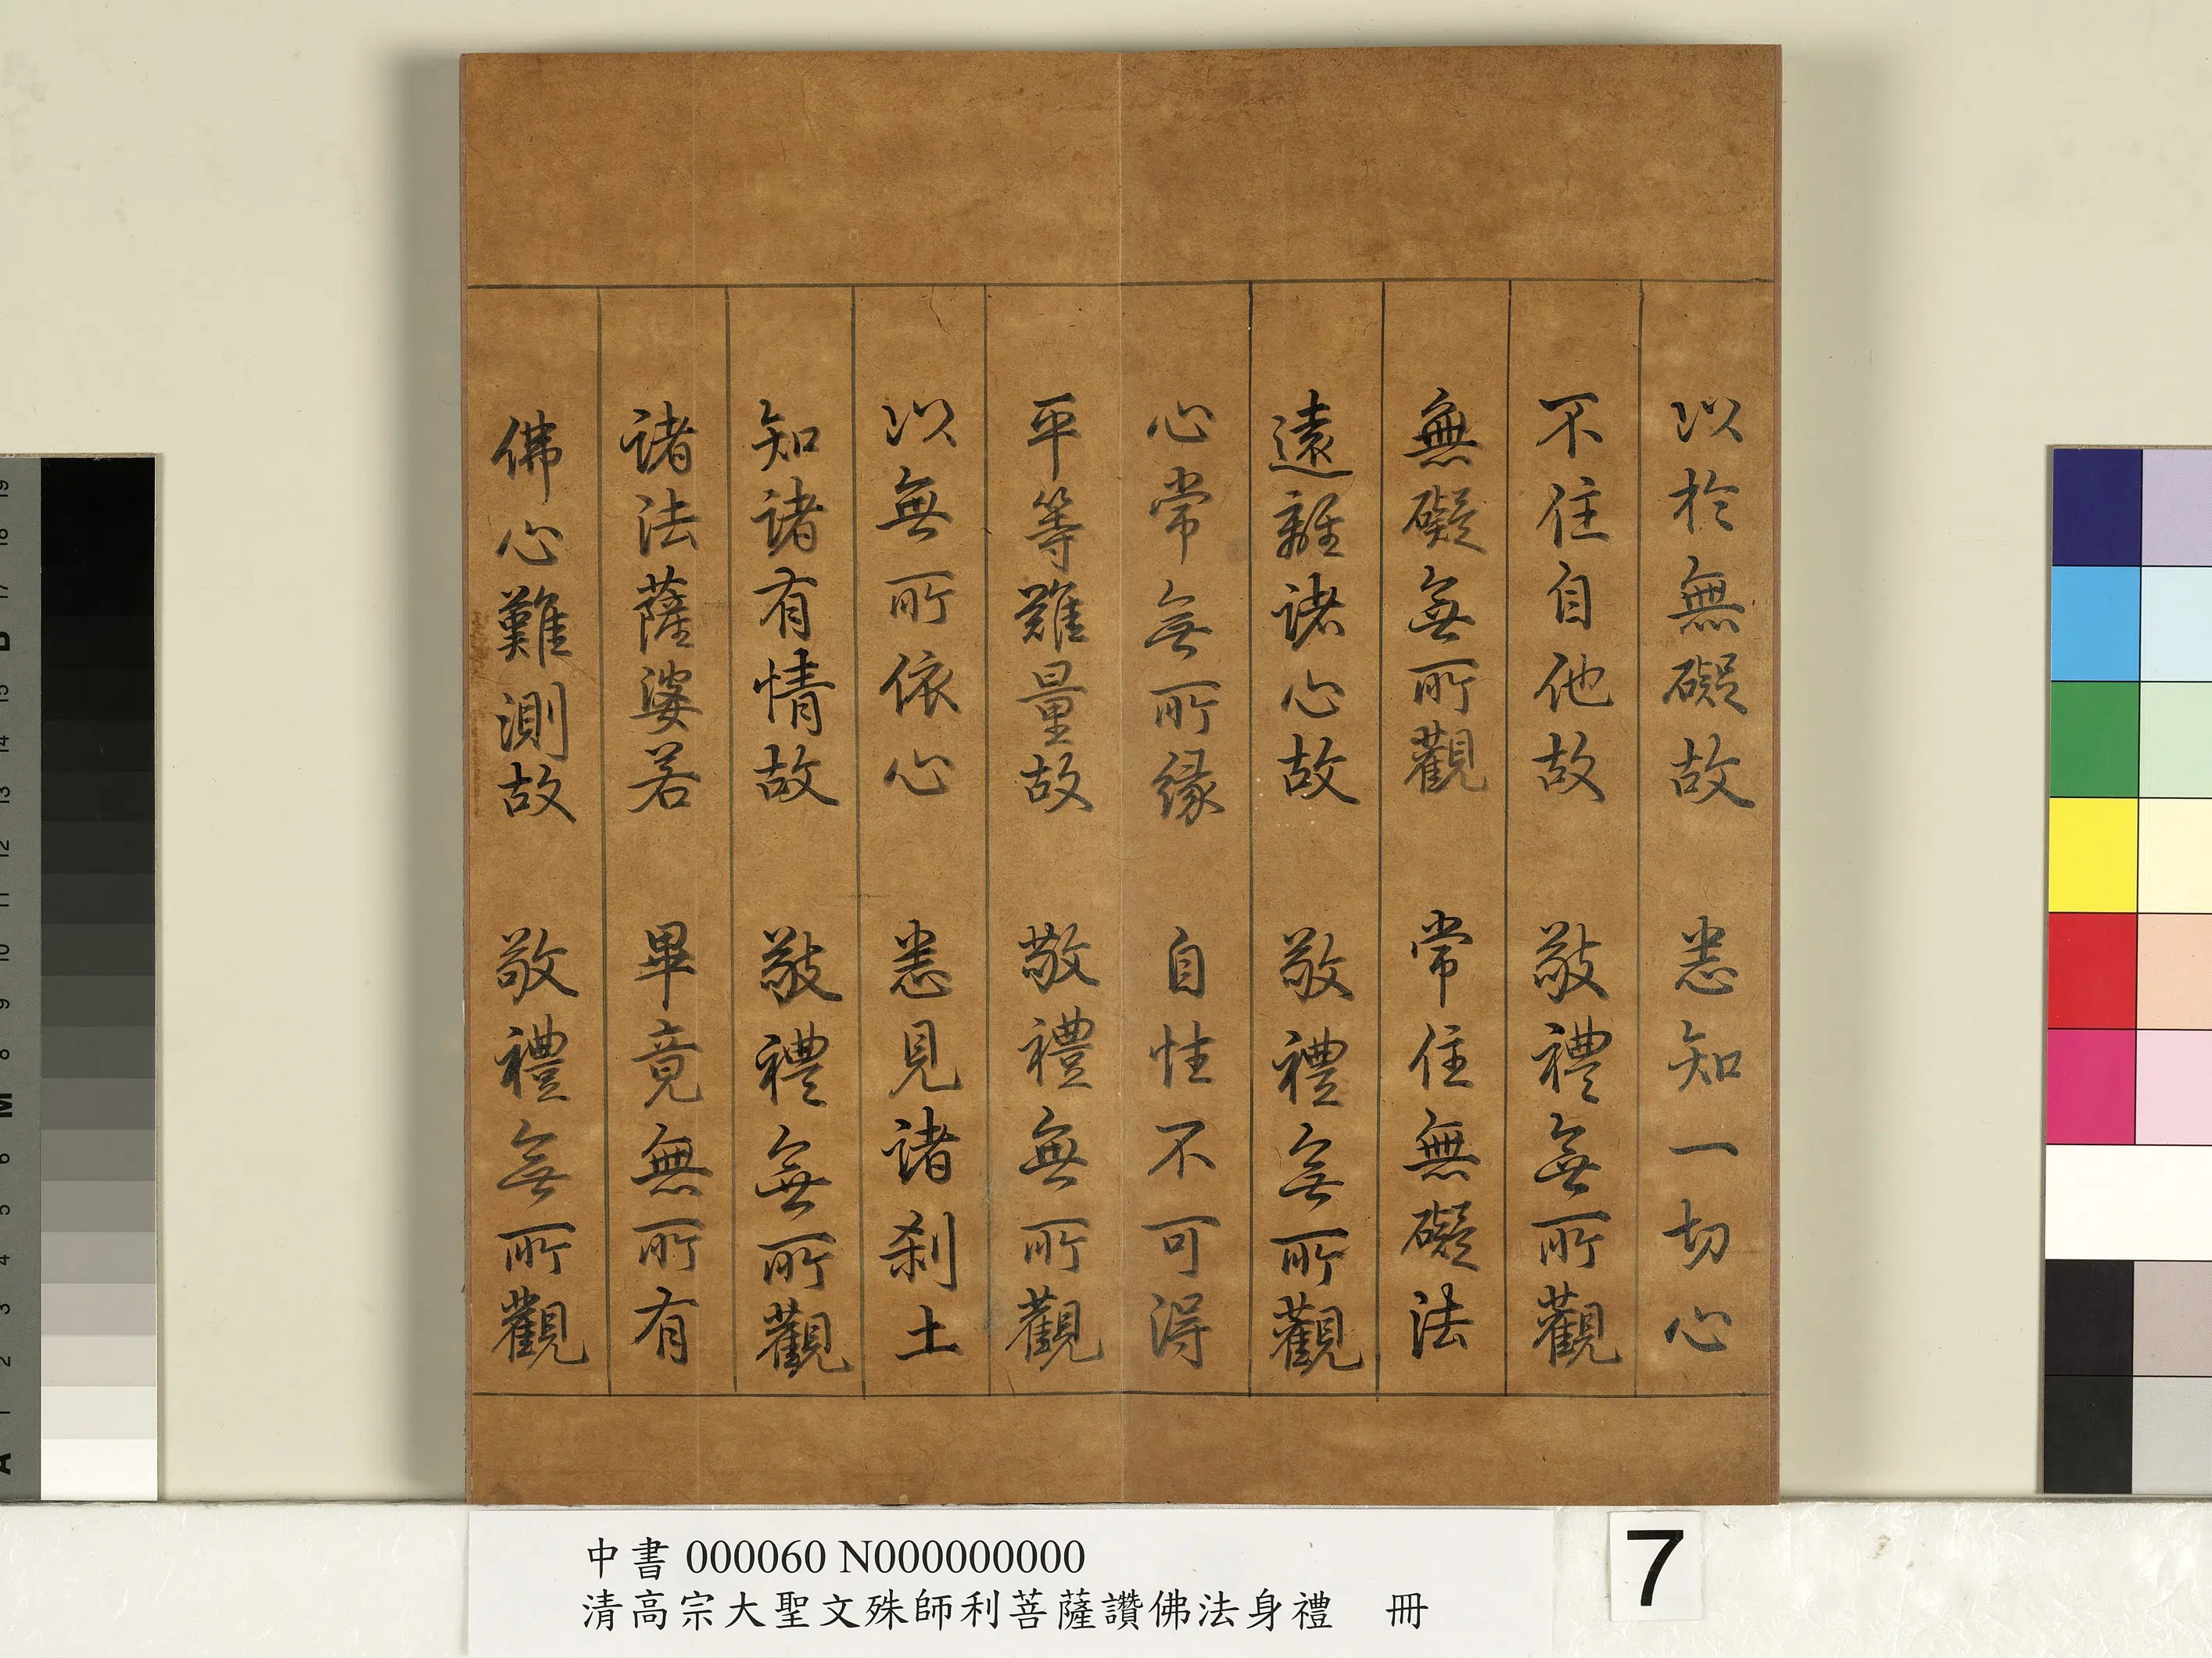 以於無礙故　悉知一切心
不住自他故　敬禮無所觀
無礙無所觀　常住無礙法
遠離諸心故　敬禮無所觀
心常無所緣　自性不可得
平等難量故　敬禮無所觀
以無所依心　悉見諸剎土
知諸有情故　敬禮無所觀
諸法薩婆若　畢竟無所有
佛心難測故　敬禮無所觀
中書 000060 N000000000
清高宗大聖文殊師利菩薩讚佛法身禮　冊
7
19
18
17
B
15
14
13
12
11
10
9
8
M
6
5
4
3
2
1
A